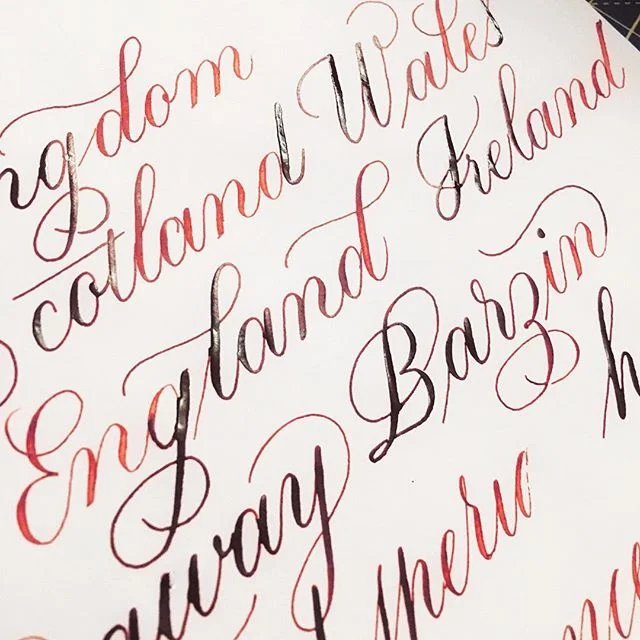 ngdom
cotland Wales
England Ireland
away Barzin h